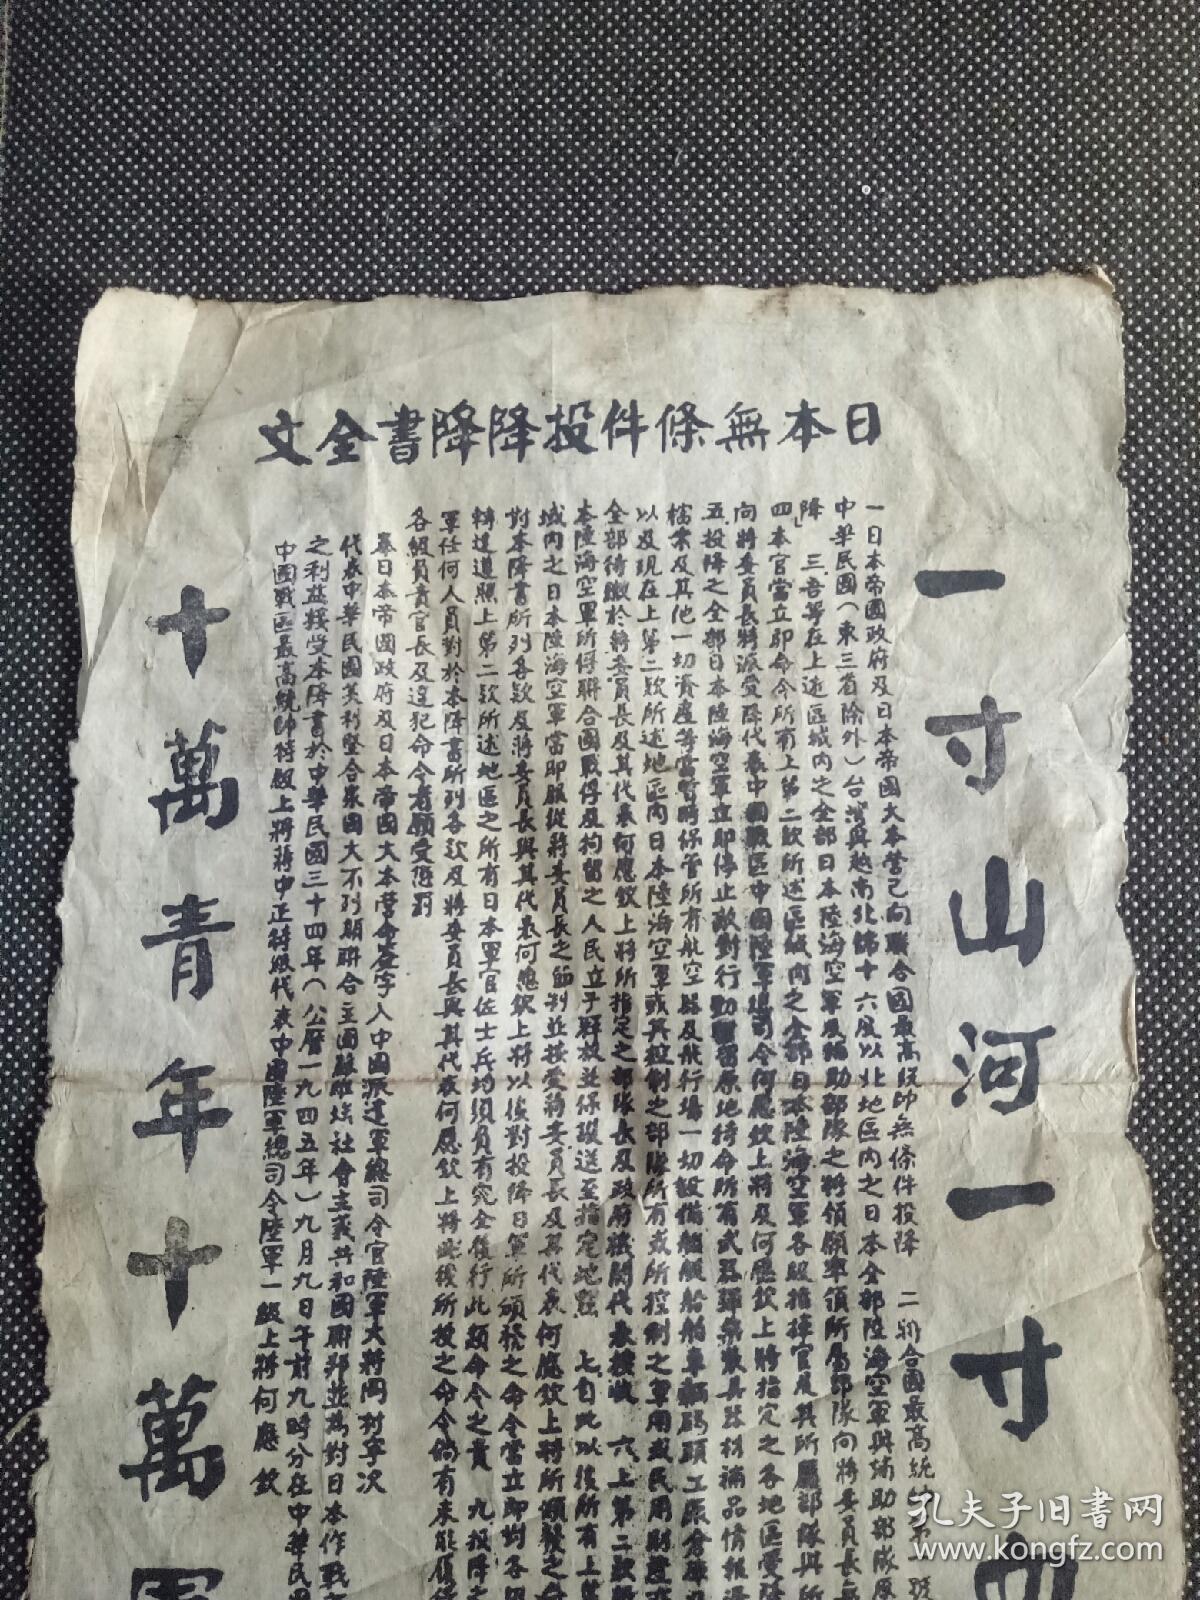 日本無條件投降降書全文
一寸山河一寸血
一日本帝國政府及日本帝國大本營已向聯合國最高統帥無條件投降 二聯合國最高統帥第一號
中華民國(東三省除外)台灣與越南北緯十六度以北地區內之日本全部陸海空軍與輔助部隊應
降」 三吾等在上述區域內之全部日本陸海空軍及輔助部隊之將領願率領所屬部隊向將委員長無
四本官當立即命令所有上第二款所述區域內之全部日本陸海空軍各級指揮官及其所屬部隊與所
向將委員長特派受降代表中國戰區中國陸軍總司令何應欽上將及何應欽上將指定之各地區受降
五投降之全部日本陸海空軍立即停止敵對行動暫留原地待命所有武器彈藥裝具器材補品情報
檔案及其他一切資產等當暫時保管所有航空器及飛行場一切設備艦艇船舶車輛碼頭工廠倉庫
以及現在上第二款所述地區內日本陸海空軍或其控制之部隊所有或所控制之軍用或民用財產亦
全部待繳於將委員長及其代表何應欽上將所指定之部隊長及政府機關代表接收 六上第二款
本陸海空軍所俘聯合國戰俘及拘留之人民立予釋放並保護送至指定地點 七自此以後所有上第
城內之日本陸海空軍當即服從將委員長之節制並接受將委員長及其代表何應欽上將所頒發之命
對本降書所列各款及將委員長與其代表何應欽上將以後對投降日軍所頒發之命令當立即對各級
轉達遵照上第二款所述地區之所有日本軍官佐士兵均須負有完全履行此類命令之責 九投降之
軍任何人員對於本降書所列各款及將委員長與其代表何應欽上將此後所授之命令倘有未能履行
各級負責官長及違犯命令者願受懲罰
奉日本帝國政府及日本帝國大本營命簽字人中國派遣軍總司令官陸軍大將岡村寧次
代表中華民國美利堅合眾國大不列顛聯合王國蘇維埃社會主義共和國聯邦並為對日本作戰
之利益接受本降書於中華民國三十四年(公曆一九四五年)九月九日午前九時分在中華民
中國戰區最高統帥特級上將蔣中正特派代表中國陸軍總司令陸軍一級上將何應欽
十萬青年十萬軍
孔夫子旧书网
www.kongfz.com